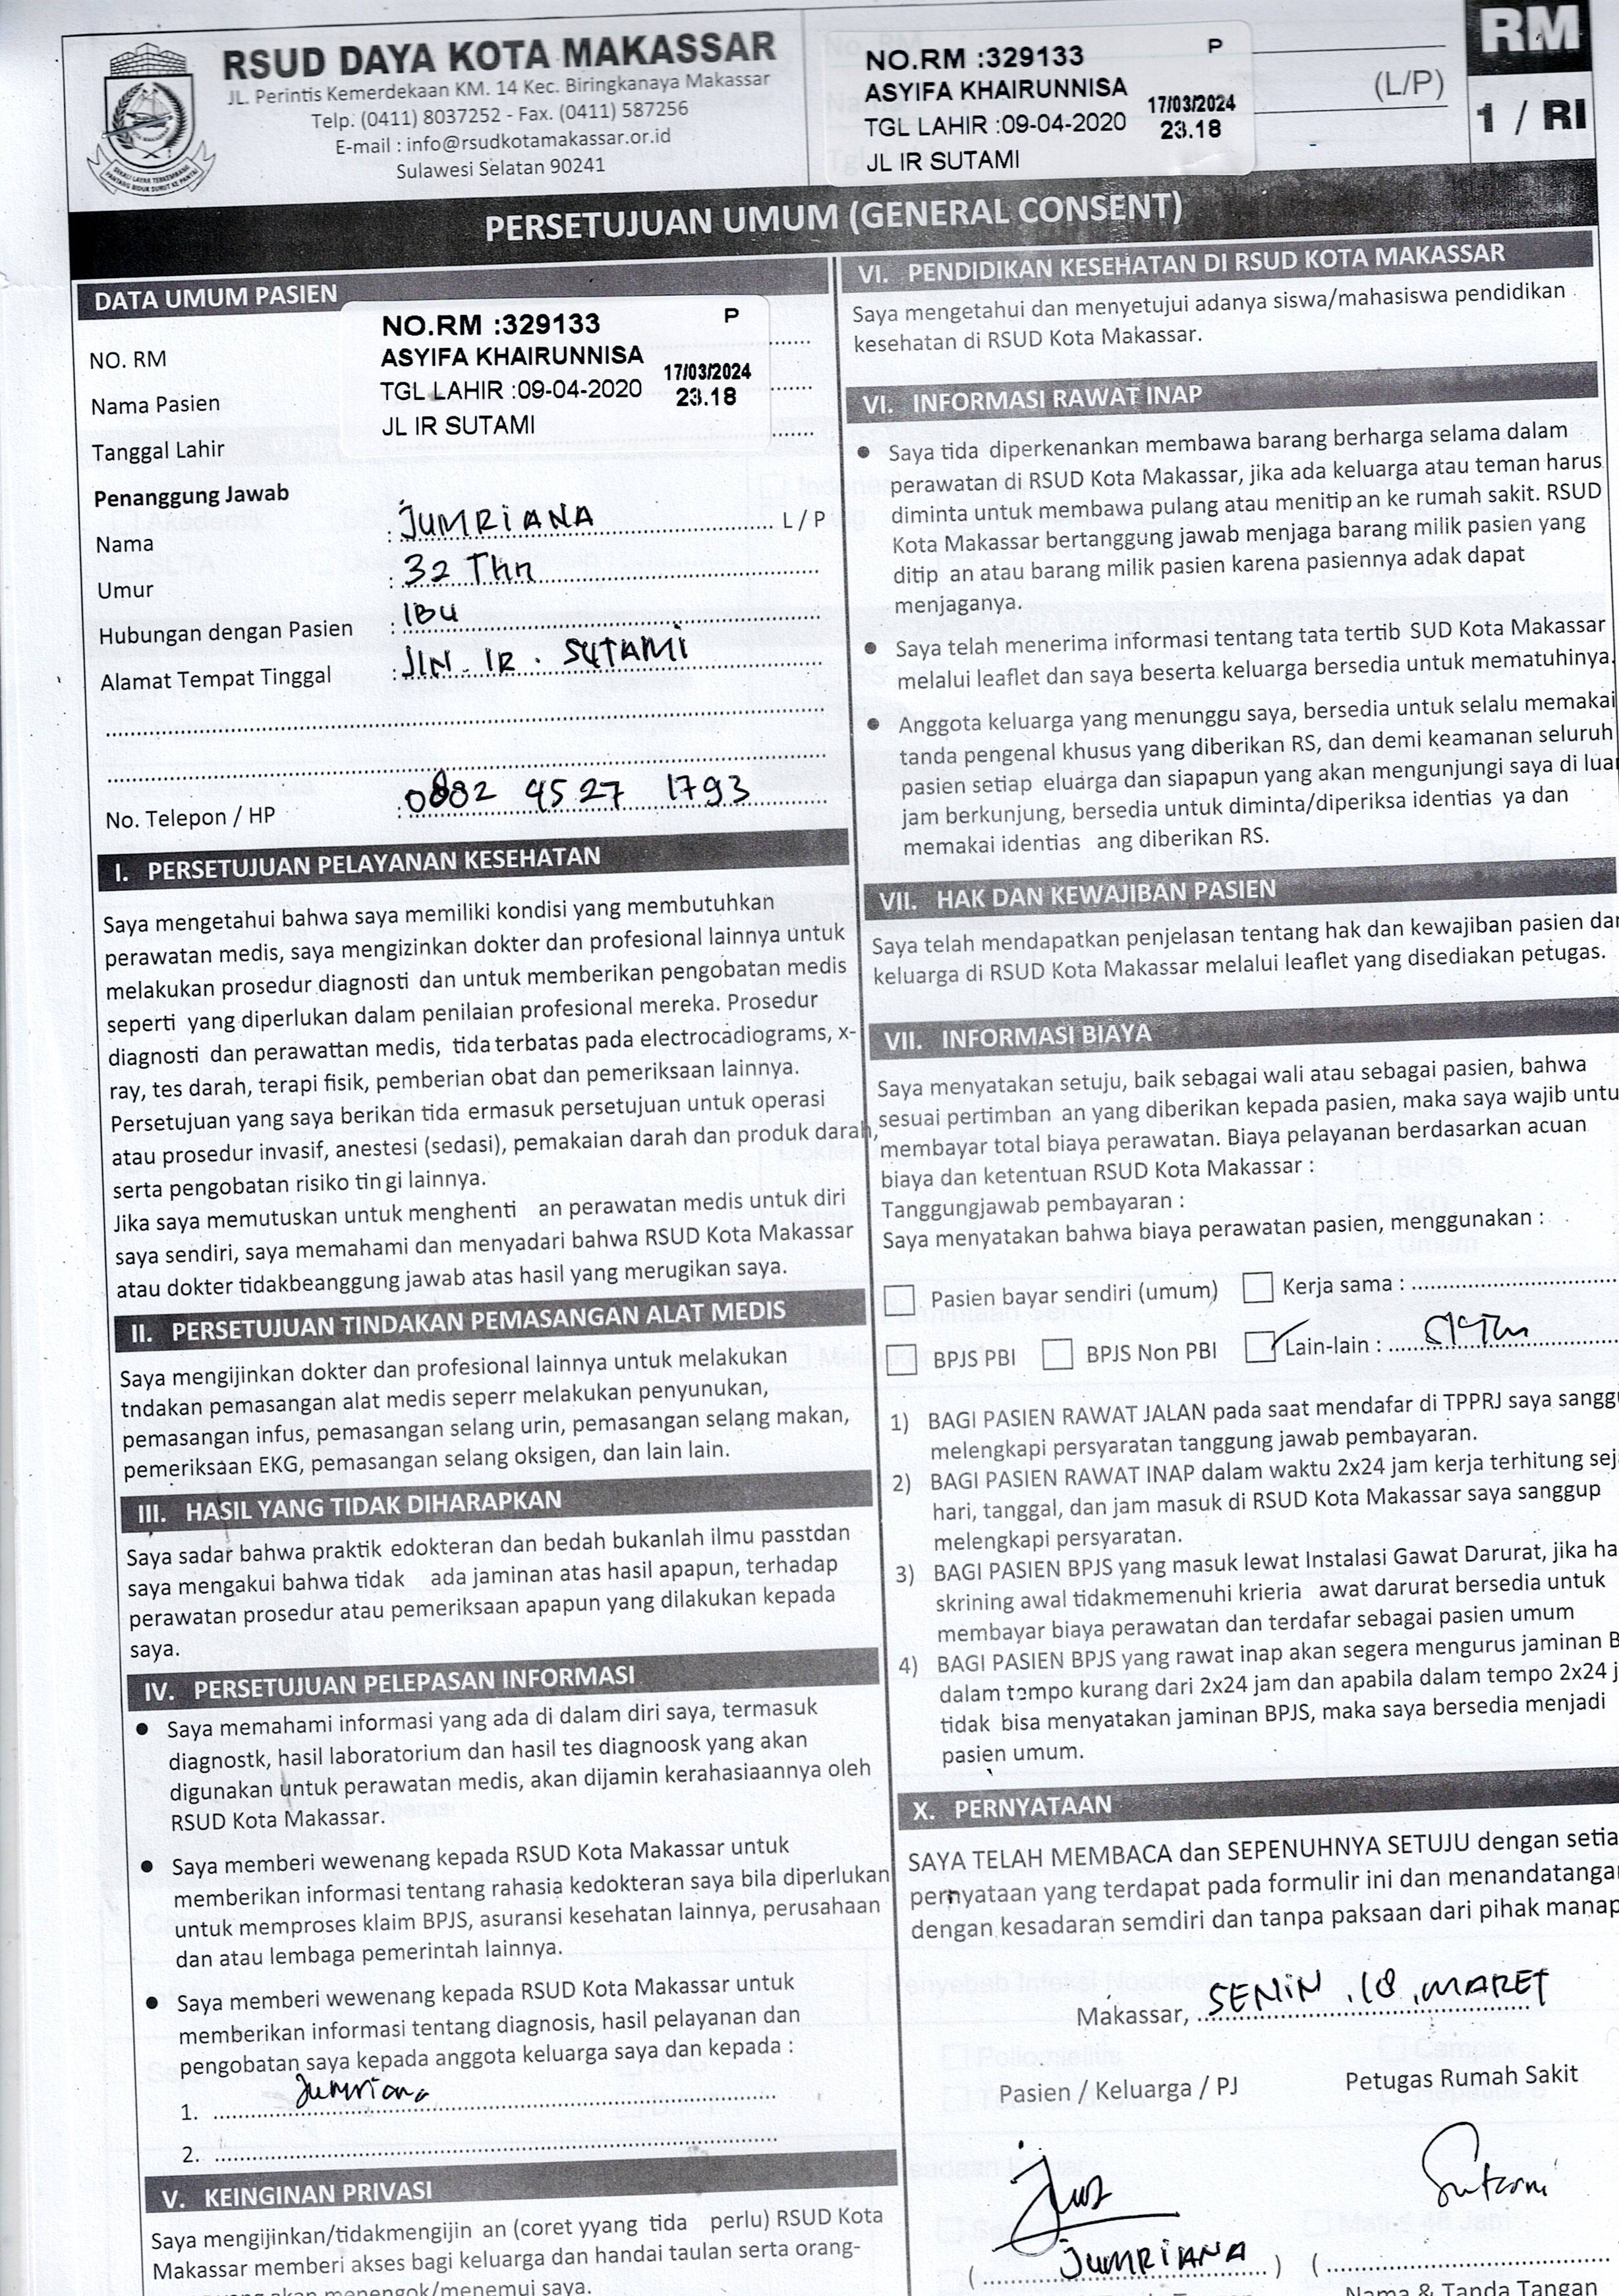 RSUD DAYA KOTA MAKASSAR
JL. Perintis Kemerdekaan KM. 14 Kec. Biringkanaya Makassar
Telp. (0411) 8037252 - Fax. (0411) 587256
E-mail : info@rsudkotamakassar.or.id
Sulawesi Selatan 90241
NO.RM :329133 P
ASYIFA KHAIRUNNISA
TGL LAHIR :09-04-2020 17/03/2024
23.18
JL IR SUTAMI
(L/P)
RM
1 / RI
PERSETUJUAN UMUM (GENERAL CONSENT)
DATA UMUM PASIEN
NO. RM
Nama Pasien
Tanggal Lahir
NO.RM :329133 P
ASYIFA KHAIRUNNISA
TGL LAHIR :09-04-2020 17/03/2024
23.18
JL IR SUTAMI
Penanggung Jawab
Nama : JUMRIANA L / P
Umur : 32 Thn
Hubungan dengan Pasien : IBU
Alamat Tempat Tinggal : JLN. IR. SUTAMI
No. Telepon / HP : 0882 4527 1793
I. PERSETUJUAN PELAYANAN KESEHATAN
Saya mengetahui bahwa saya memiliki kondisi yang membutuhkan
perawatan medis, saya mengizinkan dokter dan profesional lainnya untuk
melakukan prosedur diagnosti dan untuk memberikan pengobatan medis
seperti yang diperlukan dalam penilaian profesional mereka. Prosedur
diagnosti dan perawattan medis, tida terbatas pada electrocadiograms, x-
ray, tes darah, terapi fisik, pemberian obat dan pemeriksaan lainnya.
Persetujuan yang saya berikan tida ermasuk persetujuan untuk operasi
atau prosedur invasif, anestesi (sedasi), pemakaian darah dan produk darah,
serta pengobatan risiko tin gi lainnya.
Jika saya memutuskan untuk menghenti an perawatan medis untuk diri
saya sendiri, saya memahami dan menyadari bahwa RSUD Kota Makassar
atau dokter tidakbeanggung jawab atas hasil yang merugikan saya.
II. PERSETUJUAN TINDAKAN PEMASANGAN ALAT MEDIS
Saya mengijinkan dokter dan profesional lainnya untuk melakukan
tndakan pemasangan alat medis seperr melakukan penyunukan,
pemasangan infus, pemasangan selang urin, pemasangan selang makan,
pemeriksaan EKG, pemasangan selang oksigen, dan lain lain.
III. HASIL YANG TIDAK DIHARAPKAN
Saya sadar bahwa praktik edokteran dan bedah bukanlah ilmu passtdan
saya mengakui bahwa tidak ada jaminan atas hasil apapun, terhadap
perawatan prosedur atau pemeriksaan apapun yang dilakukan kepada
saya.
IV. PERSETUJUAN PELEPASAN INFORMASI
● Saya memahami informasi yang ada di dalam diri saya, termasuk
diagnostk, hasil laboratorium dan hasil tes diagnoosk yang akan
digunakan untuk perawatan medis, akan dijamin kerahasiaannya oleh
RSUD Kota Makassar.
● Saya memberi wewenang kepada RSUD Kota Makassar untuk
memberikan informasi tentang rahasia kedokteran saya bila diperlukan
untuk memproses klaim BPJS, asuransi kesehatan lainnya, perusahaan
dan atau lembaga pemerintah lainnya.
● Saya memberi wewenang kepada RSUD Kota Makassar untuk
memberikan informasi tentang diagnosis, hasil pelayanan dan
pengobatan saya kepada anggota keluarga saya dan kepada :
1. Jumriana
2.
V. KEINGINAN PRIVASI
Saya mengijinkan/tidakmengijin an (coret yyang tida perlu) RSUD Kota
Makassar memberi akses bagi keluarga dan handai taulan serta orang-
akan menengok/menemui saya.
VI. PENDIDIKAN KESEHATAN DI RSUD KOTA MAKASSAR
Saya mengetahui dan menyetujui adanya siswa/mahasiswa pendidikan
kesehatan di RSUD Kota Makassar.
VI. INFORMASI RAWAT INAP
● Saya tida diperkenankan membawa barang berharga selama dalam
perawatan di RSUD Kota Makassar, jika ada keluarga atau teman harus
diminta untuk membawa pulang atau menitip an ke rumah sakit. RSUD
Kota Makassar bertanggung jawab menjaga barang milik pasien yang
ditip an atau barang milik pasien karena pasiennya adak dapat
menjaganya.
● Saya telah menerima informasi tentang tata tertib SUD Kota Makassar
melalui leaflet dan saya beserta keluarga bersedia untuk mematuhinya.
● Anggota keluarga yang menunggu saya, bersedia untuk selalu memakai
tanda pengenal khusus yang diberikan RS, dan demi keamanan seluruh
pasien setiap eluarga dan siapapun yang akan mengunjungi saya di luar
jam berkunjung, bersedia untuk diminta/diperiksa identias ya dan
memakai identias ang diberikan RS.
VII. HAK DAN KEWAJIBAN PASIEN
Saya telah mendapatkan penjelasan tentang hak dan kewajiban pasien dan
keluarga di RSUD Kota Makassar melalui leaflet yang disediakan petugas.
VII. INFORMASI BIAYA
Saya menyatakan setuju, baik sebagai wali atau sebagai pasien, bahwa
sesuai pertimban an yang diberikan kepada pasien, maka saya wajib untu
membayar total biaya perawatan. Biaya pelayanan berdasarkan acuan
biaya dan ketentuan RSUD Kota Makassar :
Tanggungjawab pembayaran :
Saya menyatakan bahwa biaya perawatan pasien, menggunakan :
Pasien bayar sendiri (umum) Kerja sama :
BPJS PBI BPJS Non PBI Lain-lain :
1) BAGI PASIEN RAWAT JALAN pada saat mendafar di TPPRJ saya sangg
melengkapi persyaratan tanggung jawab pembayaran.
2) BAGI PASIEN RAWAT INAP dalam waktu 2x24 jam kerja terhitung sej
hari, tanggal, dan jam masuk di RSUD Kota Makassar saya sanggup
melengkapi persyaratan.
3) BAGI PASIEN BPJS yang masuk lewat Instalasi Gawat Darurat, jika ha
skrining awal tidakmemenuhi krieria awat darurat bersedia untuk
membayar biaya perawatan dan terdafar sebagai pasien umum
4) BAGI PASIEN BPJS yang rawat inap akan segera mengurus jaminan B
dalam tempo kurang dari 2x24 jam dan apabila dalam tempo 2x24 j
tidak bisa menyatakan jaminan BPJS, maka saya bersedia menjadi
pasien umum.
X. PERNYATAAN
SAYA TELAH MEMBACA dan SEPENUHNYA SETUJU dengan setia
pernyataan yang terdapat pada formulir ini dan menandatanga
dengan kesadaran semdiri dan tanpa paksaan dari pihak manap
Makassar, SENIN, 18, MARET
Pasien / Keluarga / PJ Petugas Rumah Sakit
( JUMRIANA ) (
Nama & Tanda Tangan